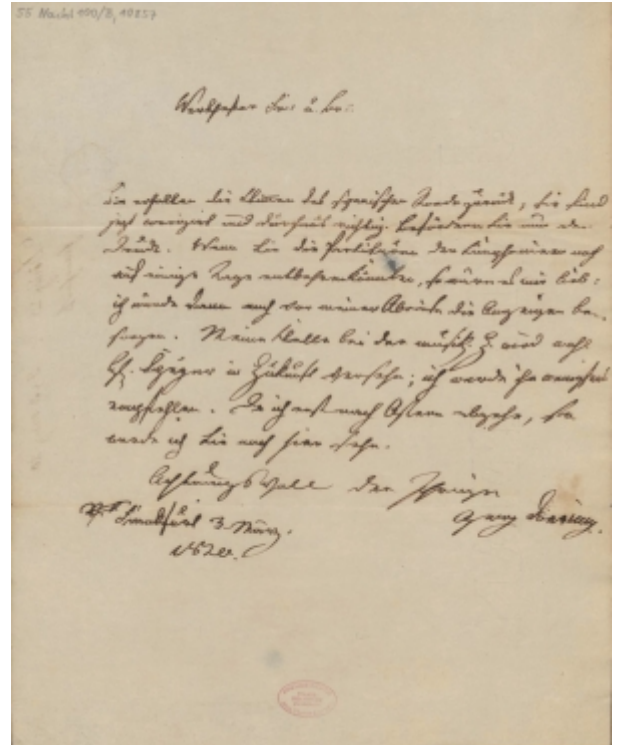 55 Nachl 100/B, 10257
Werthester Hr: u. Fr:
Sie erhalten die Stimmen des spanischen Rondo zurück, sie sind
jezt corrigirt und durchaus richtig. Befördern Sie nun den
Druck. Wenn Sie die Partituren der Simphonien noch
auf einige Tage entbehren könnten, so wäre es mir lieb:
ich würde dann auch vor meiner Abreise die Anzeigen be-
sorgen. Meine Stelle bei der musik. Z. wird wohl
H. in Zukunft versehn; ich werde ihn wenigstens
empfehlen. Da ich erst nach Ostern abgehe, so
werde ich Sie noch hier sehn.
Achtungsvoll der Ihrige
Georg Döring.
Frankfurt 3. März.
1820.